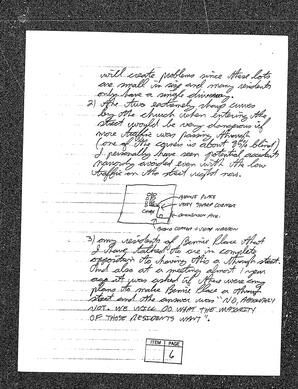 will create problems since these lots
are small in size and many residents
only have a single driveway.
2) The two extremely sharp curves
by the church when entering the
street would be very dangerous if
more traffic was passing through
(one of the curves is about 95% blind)
I personally have seen potential accidents
narrowly avoided even with the low
traffic on the street right now.
VERY SHARP CORNER
3) any residents of Bonnie Place that
I have talked to are in complete
opposition to having this a through street.
And also at a meeting almost 1 year
ago it was asked if there were any
plans to make Bonnie Place a through
street and the answer was "NO, ABSOLUTELY
NOT. WE WILL DO WHAT THE MAJORITY
OF THOSE RESIDENTS WANT".
ITEM PAGE
6